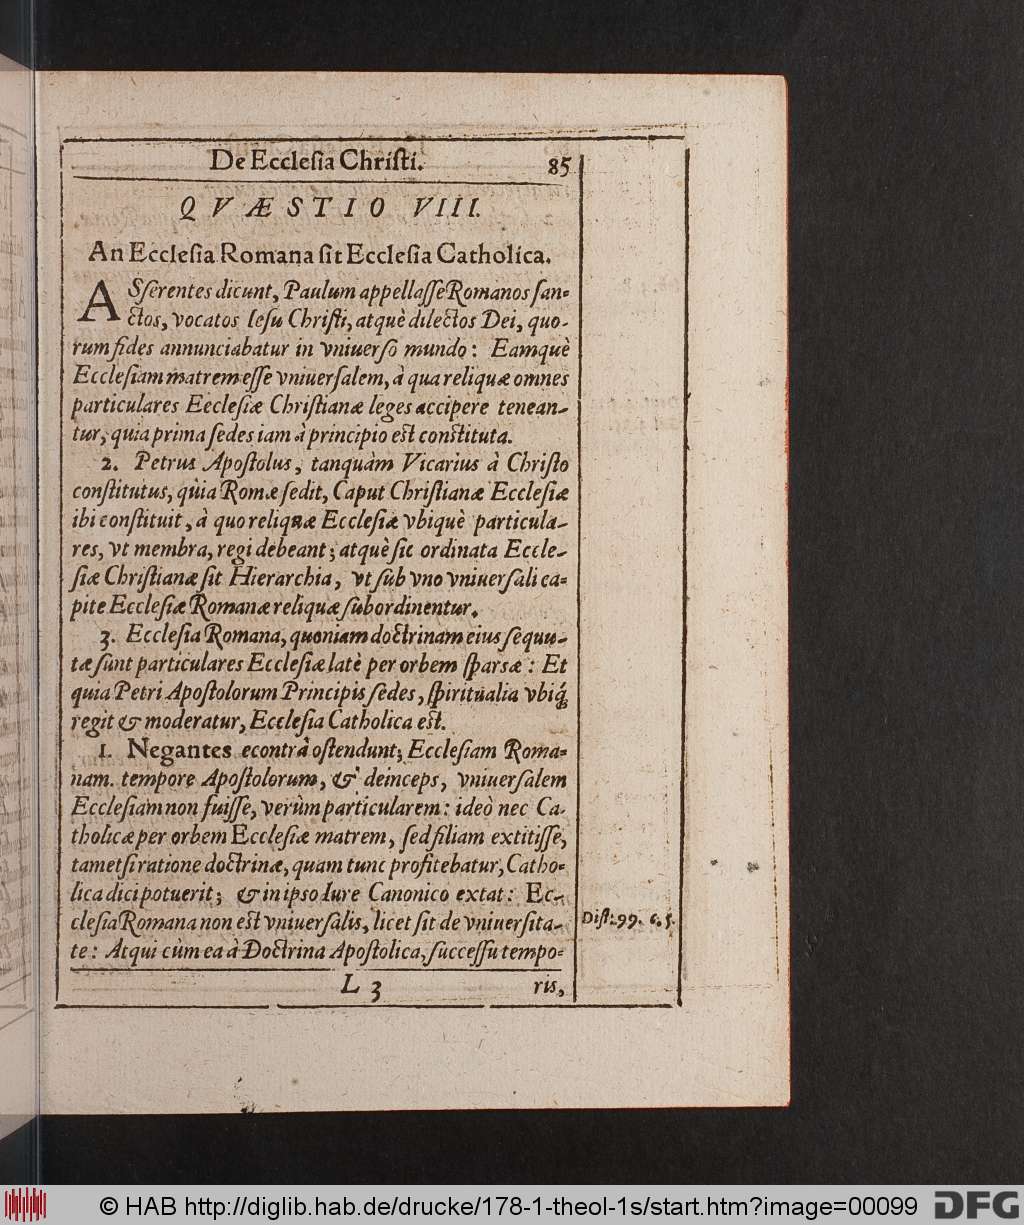 De Eccleſia Chriſti. 85
QVÆSTIO VIII.
An Eccleſia Romana ſit Eccleſia Catholica.
ASſerentes dicunt, Paulum appellaſſe Romanos ſan-
ctos, vocatos Ieſu Chriſti, atquè dilectos Dei, quo-
rum fides annunciabatur in vniuerſo mundo: Eamquè
Eccleſiam matrem eſſe vniuerſalem, à qua reliquæ omnes
particulares Eccleſiæ Chriſtianæ leges accipere tenean-
tur, quia prima ſedes iam à principio eſt conſtituta.
2. Petrus Apoſtolus, tanquàm Vicarius à Chriſto
conſtitutus, quia Romæ ſedit, Caput Chriſtianæ Eccleſiæ
ibi conſtituit, à quo reliquæ Eccleſiæ vbiquè particula-
res, vt membra, regi debeant; atquè ſic ordinata Eccle-
ſiæ Chriſtianæ ſit Hierarchia, vt ſub vno vniuerſali ca-
pite Eccleſiæ Romanæ reliquæ ſubordinentur.
3. Eccleſia Romana, quoniam doctrinam eius ſequu-
tæ ſunt particulares Eccleſiæ latè per orbem ſparsæ: Et
quia Petri Apoſtolorum Principis ſedes, ſpiritualia vbiq́;
regit & moderatur, Eccleſia Catholica eſt.
1. Negantes econtrà oſtendunt; Eccleſiam Roma-
nam. tempore Apoſtolorum, & deinceps, vniuerſalem
Eccleſiam non fuiſſe, verùm particularem: ideò nec Ca-
tholicæ per orbem Eccleſiæ matrem, ſed filiam extitiſſe,
tametſi ratione doctrinæ, quam tunc profitebatur, Catho-
lica dici potuerit; & in ipso Iure Canonico extat: Ec-
cleſia Romana non eſt vniuerſalis, licet ſit de vniuerſita-
te: Atqui cùm ea à Doctrina Apoſtolica, ſucceſſu tempo-
Diſt. 99. c. 5.
L 3 ris,
© HAB http://diglib.hab.de/drucke/178-1-theol-1s/start.htm?image=00099 DFG